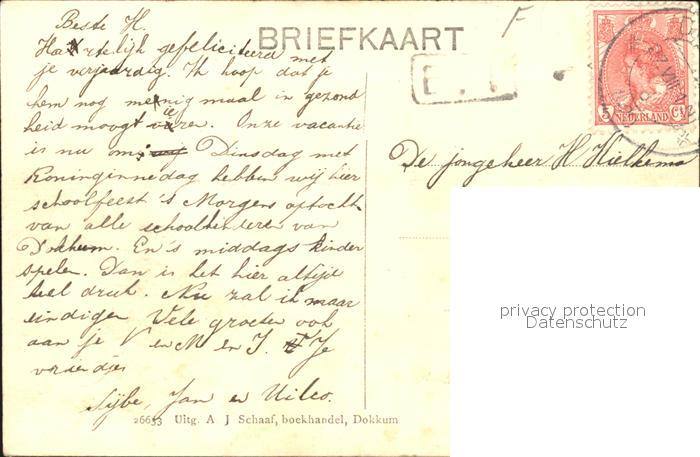 Beste H.
Hartelijk gefeliciteerd met
je verjaardig. Ik hoop dat je
hem nog menig maal in gezond
heid moogt vieren. Onze vacantie
is nu om. Dinsdag met
Koninginnedag hebben wij hier
schoolfeest 's Morgens optocht
van alle schoolkinderen van
Dokkum. En 's middags kinder
spelen. Dan is het hier altijd
heel druk. Nu zal ik maar
eindigen Vele groeten ook
aan je V en M en J. Je
vriendjes
Sijbe, Jan en Uilco.
26653 Uitg. A J Schaaf, boekhandel, Dokkum
BRIEFKAART
F
De jongeheer H Hielkema
5 NEDERLAND CT
privacy protection
Datenschutz